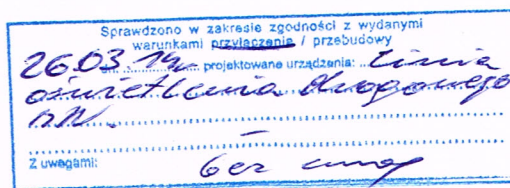 Sprawdzono w zakresie zgodności z wydanymi
warunkami przyłączenia / przebudowy
26.03.14r. projektowane urządzenia: Linia
oświetlenia drogowego
nN.
Z uwagami: bez uwag